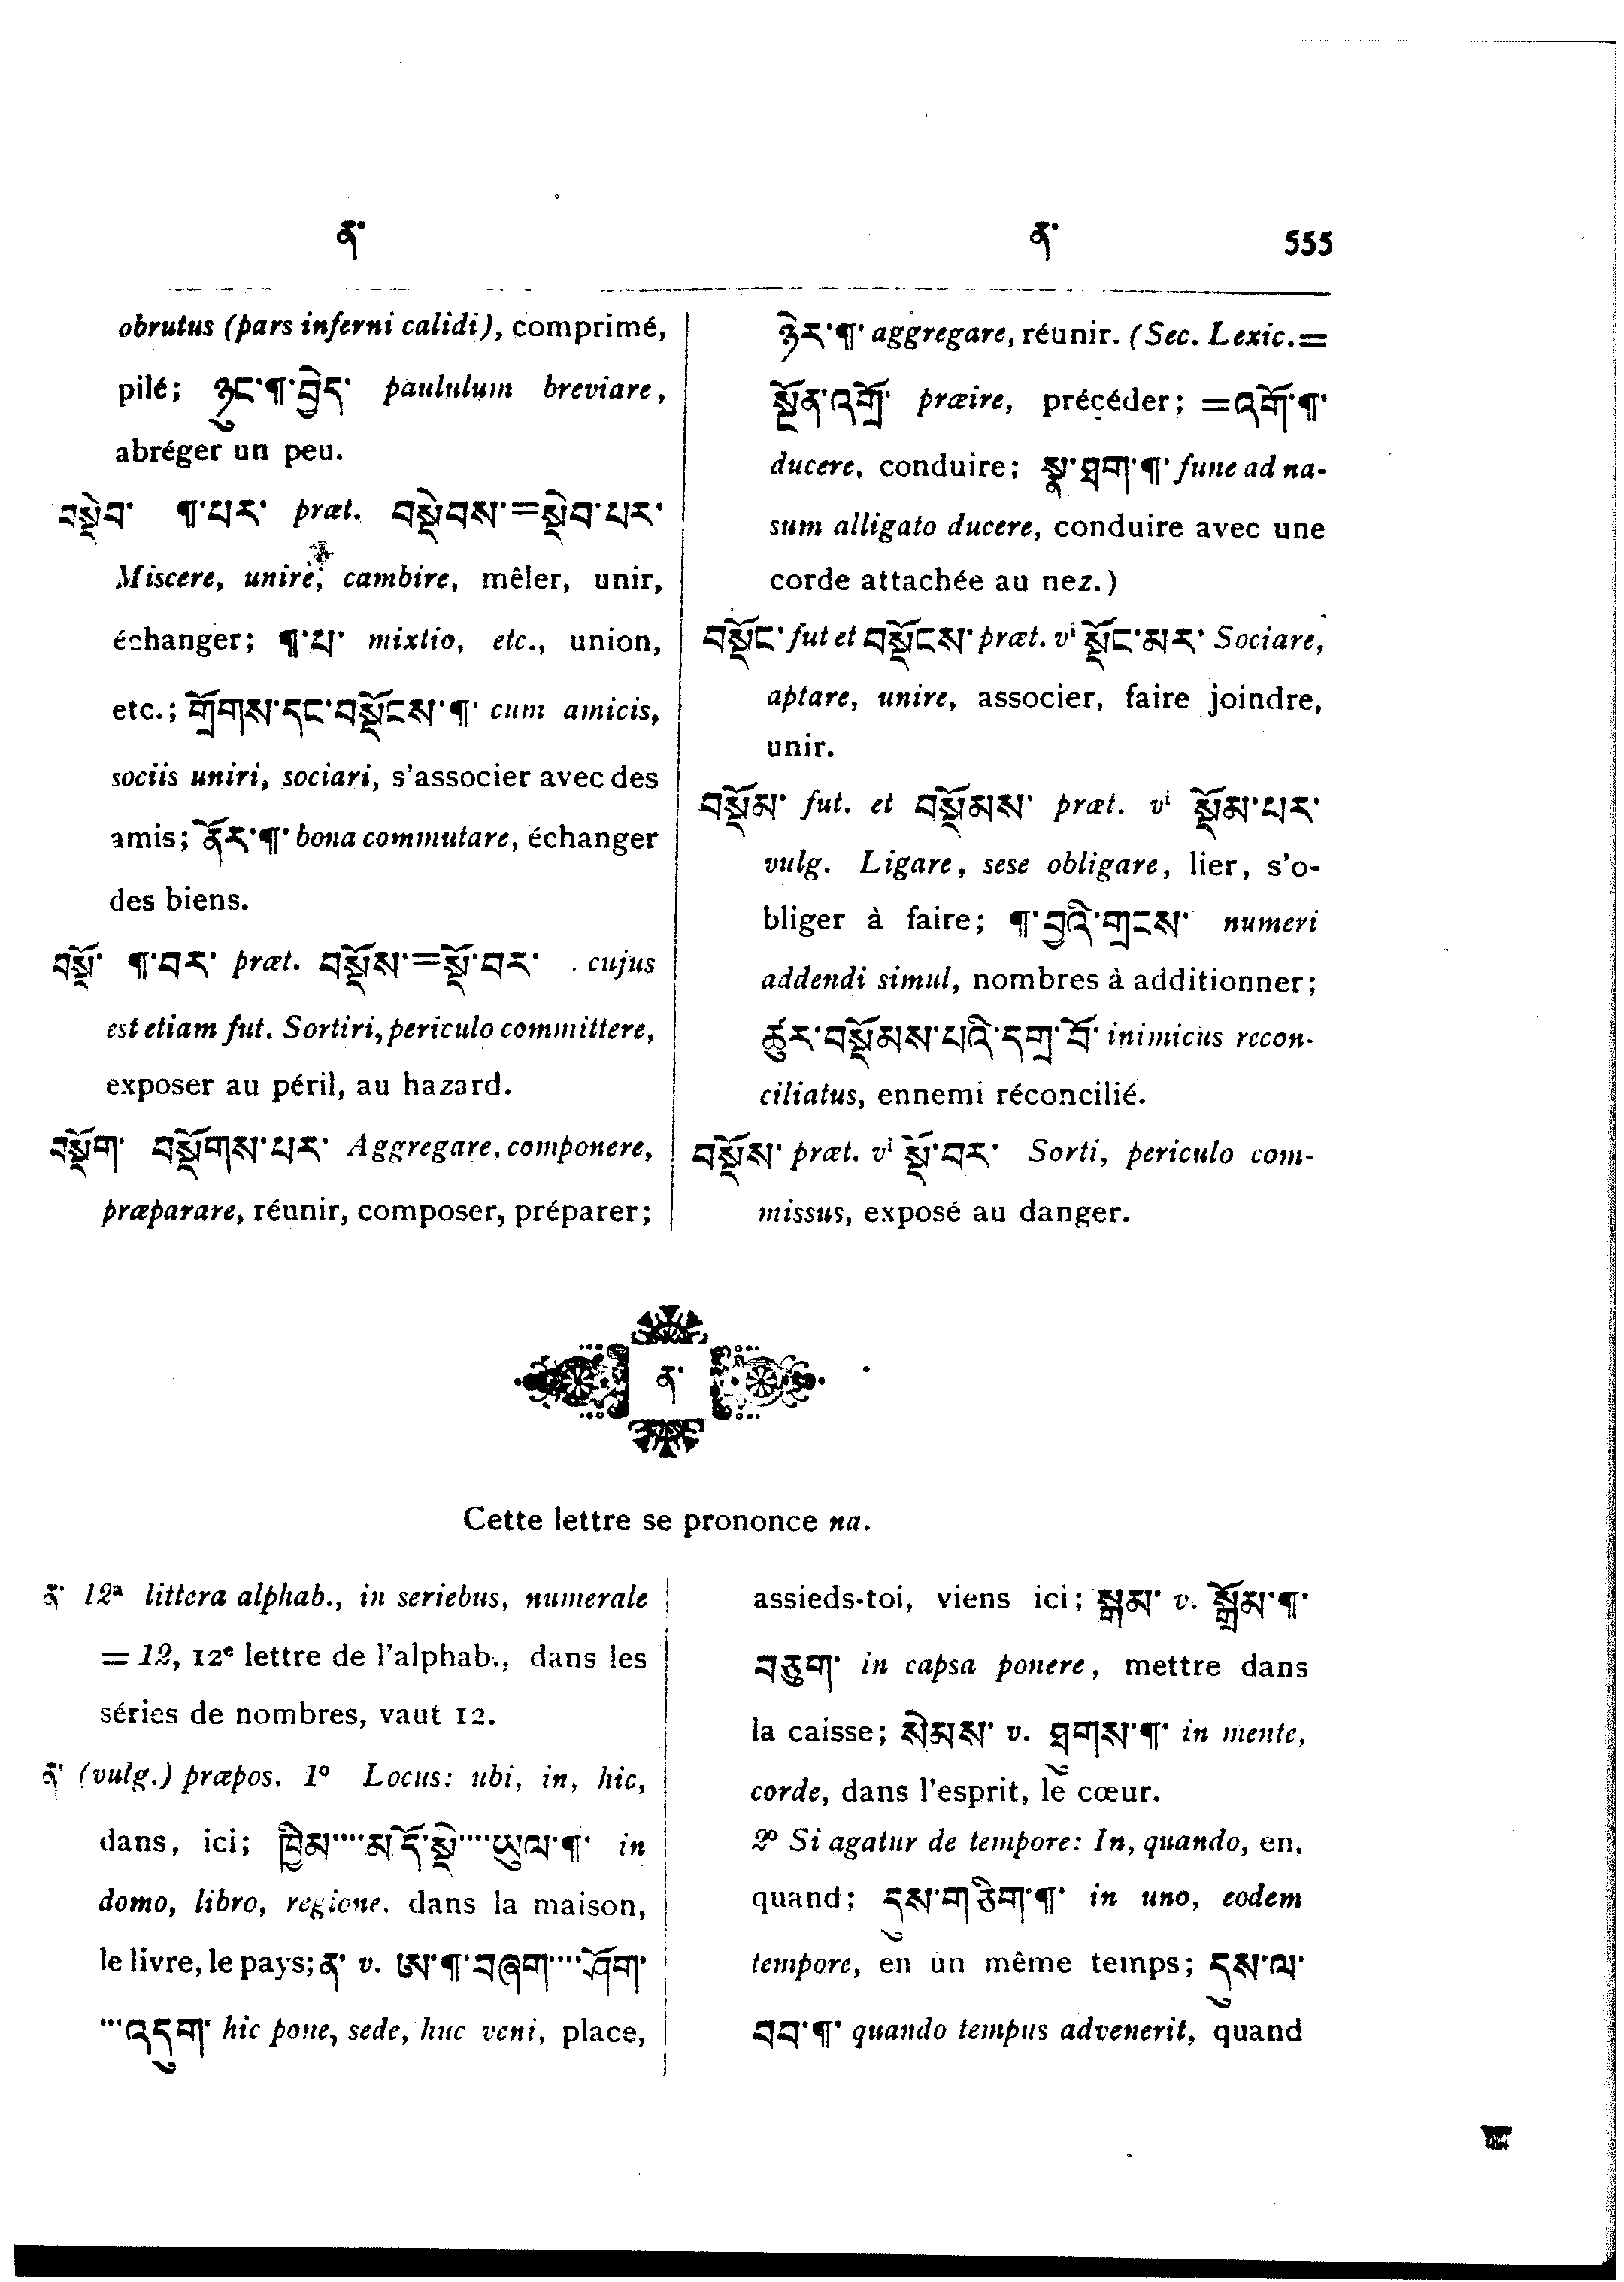 ན་
ན་ 555
obrutus (pars inferni calidi), comprimé,
pilé; ཉུང་¶་བྱེད་ paululum breviare,
abréger un peu.
བསྡེབ་ ¶་པར་ præt. བསྡེབས་=སྡེབ་པར་
Miscere, unire, cambire, mêler, unir,
échanger; ¶་པ་ mixtio, etc., union,
etc.; གྲོགས་དང་བསྡོངས་¶་ cum amicis,
sociis uniri, sociari, s'associer avec des
amis; ནོར་¶་ bona commutare, échanger
des biens.
བསྡོ་ ¶་བར་ præt. བསྡོས་=སྡོ་བར་ cujus
est etiam fut. Sortiri, periculo committere,
exposer au péril, au hazard.
བསྡོག་ བསྡོགས་པར་ Aggregare, componere,
præparare, réunir, composer, préparer;
ཉེར་¶་ aggregare, réunir. (Sec. Lexic.=
སྔོན་འགྲོ་ præire, précéder; =འགོ་¶་
ducere, conduire; སྣ་ཐག་¶་ fune ad na-
sum alligato ducere, conduire avec une
corde attachée au nez.)
བསྡོང་ fut et བསྡོངས་ præt. vⁱ སྡོང་མར་ Sociare,
aptare, unire, associer, faire joindre,
unir.
བསྡོམ་ fut. et བསྡོམས་ præt. vⁱ སྡོམ་པར་
vulg. Ligare, sese obligare, lier, s'o-
bliger à faire; ¶་བྱའི་གྲངས་ numeri
addendi simul, nombres à additionner;
ཚུར་བསྡོམས་པའི་དགྲ་བོ་ inimicus recon-
ciliatus, ennemi réconcilié.
བསྡོས་ præt. vⁱ སྡོ་བར་ Sorti, periculo com-
missus, exposé au danger.
ན་
Cette lettre se prononce na.
ན་ 12ª littera alphab., in seriebus, numerale
= 12, 12ᵉ lettre de l'alphab., dans les
séries de nombres, vaut 12.
ན་ (vulg.) præpos. 1º Locus: ubi, in, hic,
dans, ici; ཁྱིམ་...་མདོ་སྡེ་...་ཡུལ་¶་ in
domo, libro, regione. dans la maison,
le livre, le pays; ན་ v. ཨ་¶་བཞག་...་ཤོག་
...འདུག་ hic pone, sede, huc veni, place,
assieds-toi, viens ici; སྒམ་ v. སྒྲོམ་¶་
བཅུག་ in capsa ponere, mettre dans
la caisse; སེམས་ v. ཐུགས་¶་ in mente,
corde, dans l'esprit, le cœur.
2º Si agatur de tempore: In, quando, en,
quand; དུས་གཅིག་¶་ in uno, eodem
tempore, en un même temps; དུས་ལ་
བབ་¶་ quando tempus advenerit, quand